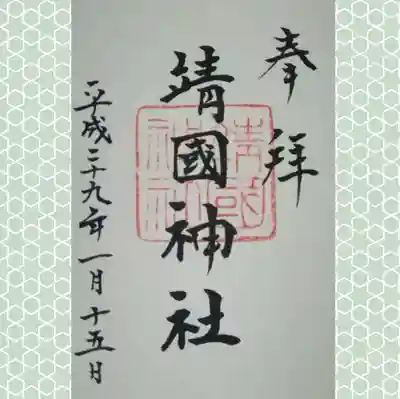 奉拝
靖國神社
平成二十九年一月十五日
靖國神社